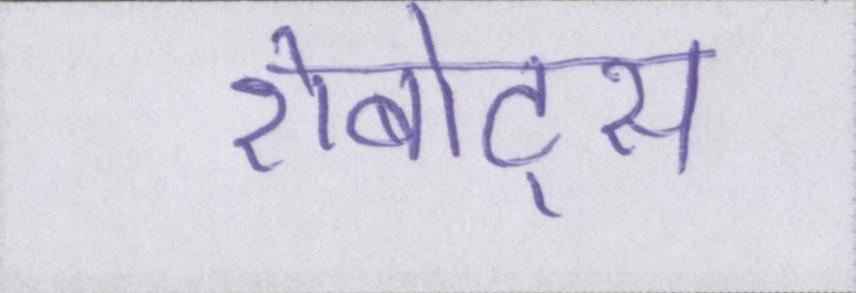 रोबोट्स